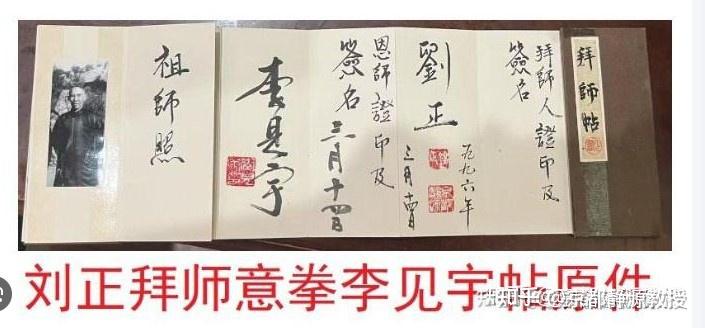 拜師帖
拜師人證印及
簽名
劉正
一九九六年
三月十四日
恩師證印及
簽名
三月十四日
李見宇
祖師照
刘正拜师意拳李见宇帖原件
知乎 @京都静源教授